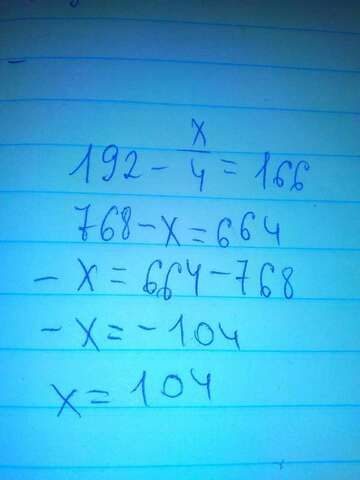 192 - x/4 = 166
768 - x = 664
- x = 664 - 768
- x = - 104
x = 104